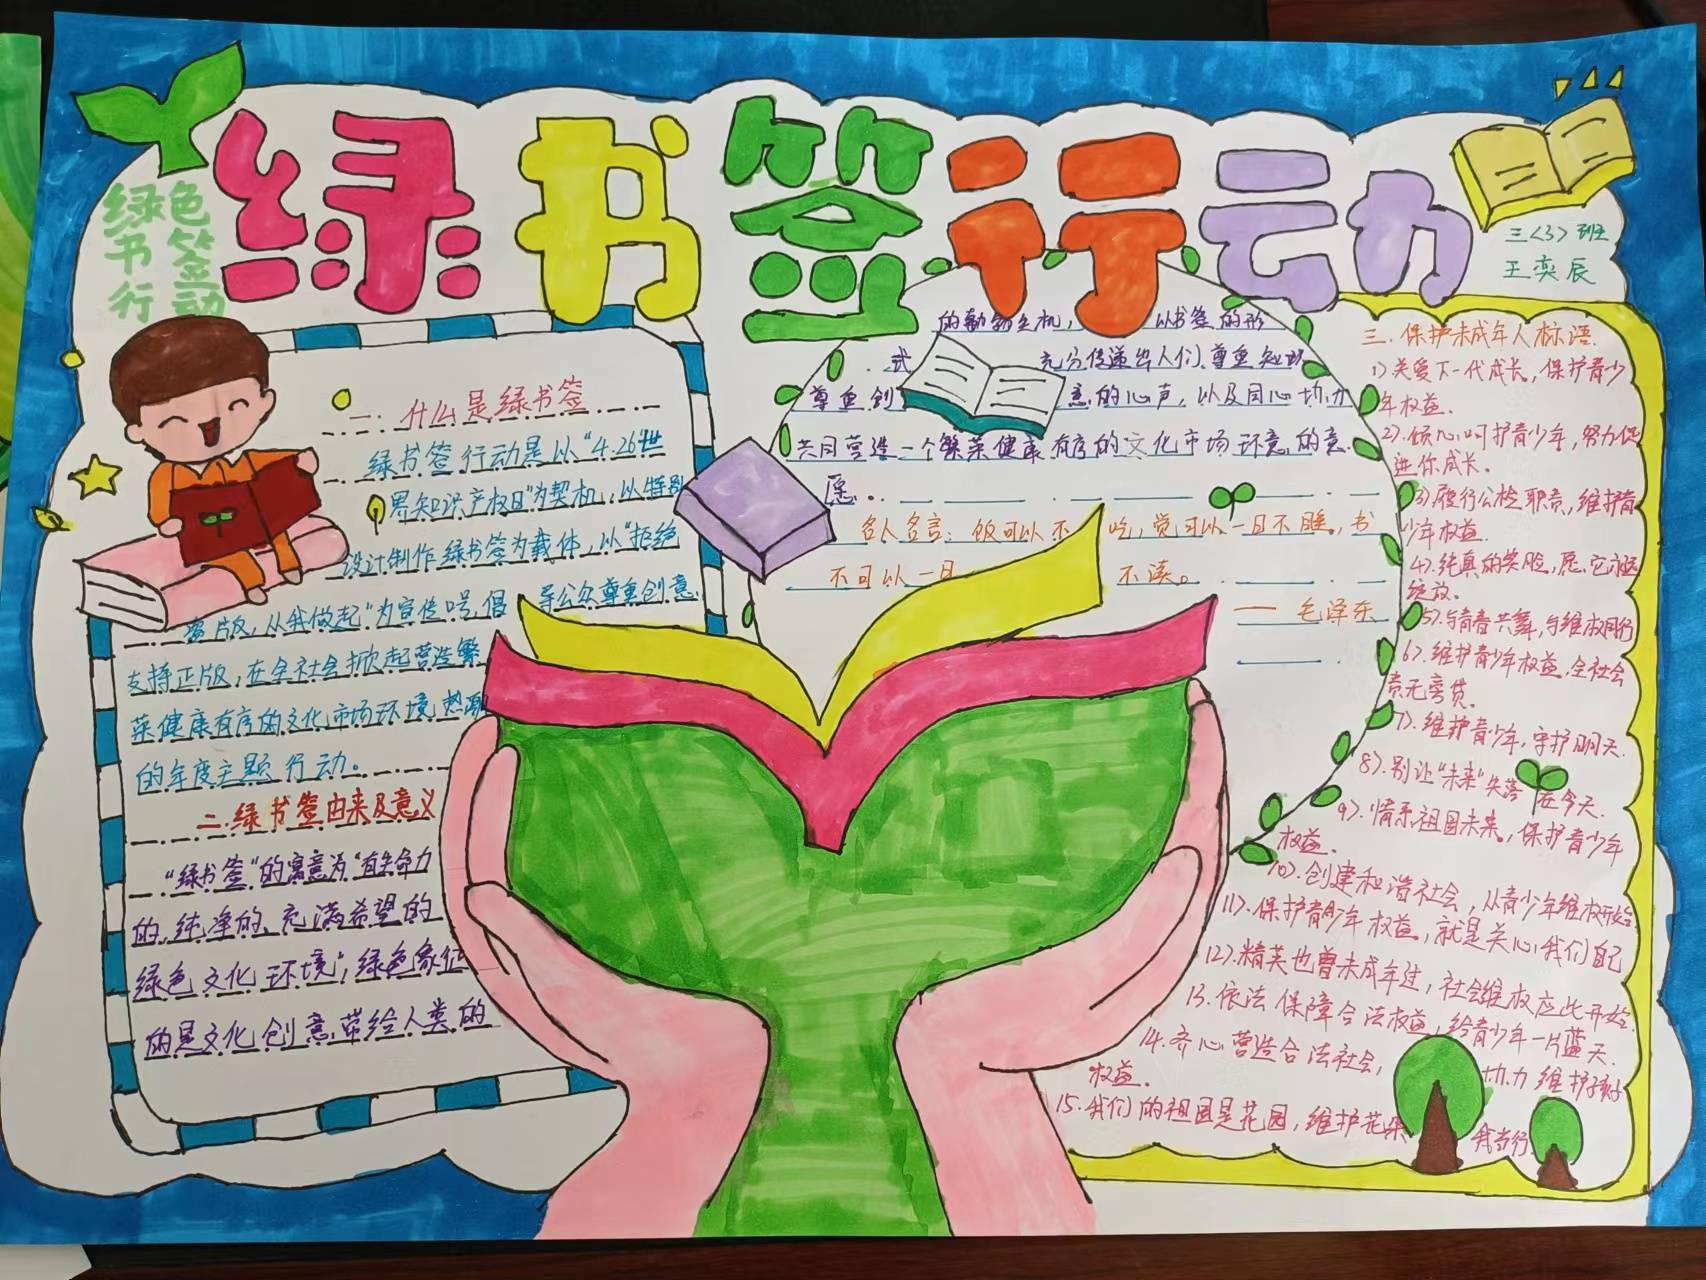 绿书签行动
绿色
书签
行动
三<3>班
王奕辰
一、什么是绿书签
绿书签行动是以“4.26世
界知识产权日”为契机,以特别
设计制作绿书签为载体,以“拒绝
盗版,从我做起”为宣传口号,倡导公众尊重创意
支持正版,在全社会掀起营造繁
荣健康有序的文化市场环境热潮
的年度主题行动。
二.绿书签由来及意义
“绿书签”的寓意为“有生命力
的、纯净的、充满希望的
绿色文化环境”;绿色象征
的是文化创意带给人类的
的勃勃生机, 以书签的形
式 充分传递出人们、尊重知识
尊重创 意的心声,以及同心协力
共同营造一个繁荣健康有序的文化市场环境的意
愿。
名人名言:饭可以不吃,觉可以一日不睡,书
不可以一日 不读。
—— 毛泽东
三.保护未成年人标语.
1)关爱下一代成长,保护青少
年权益.
2).倾心呵护青少年,努力促
进你成长。
3)履行公检职责,维护青
少年权益.
4).纯真的笑脸,愿它永远
绽放。
5).与青春共舞,与维权同行
6).维护青少年权益,全社会
责无旁贷。
7).维护青少年,守护明天.
8).别让“未来”失落在今天.
9).情系祖国未来,保护青少年
权益.
10).创建和谐社会,从青少年维权开始
11).保护青少年权益,就是关心我们自己
12).精英也曾未成年过,社会维权应此开始.
13.依法保障合法权益,给青少年一片蓝天.
14.齐心营造合法社会, 协力维护
权益.
15.我们的祖国是花园,维护花朵 我当行.